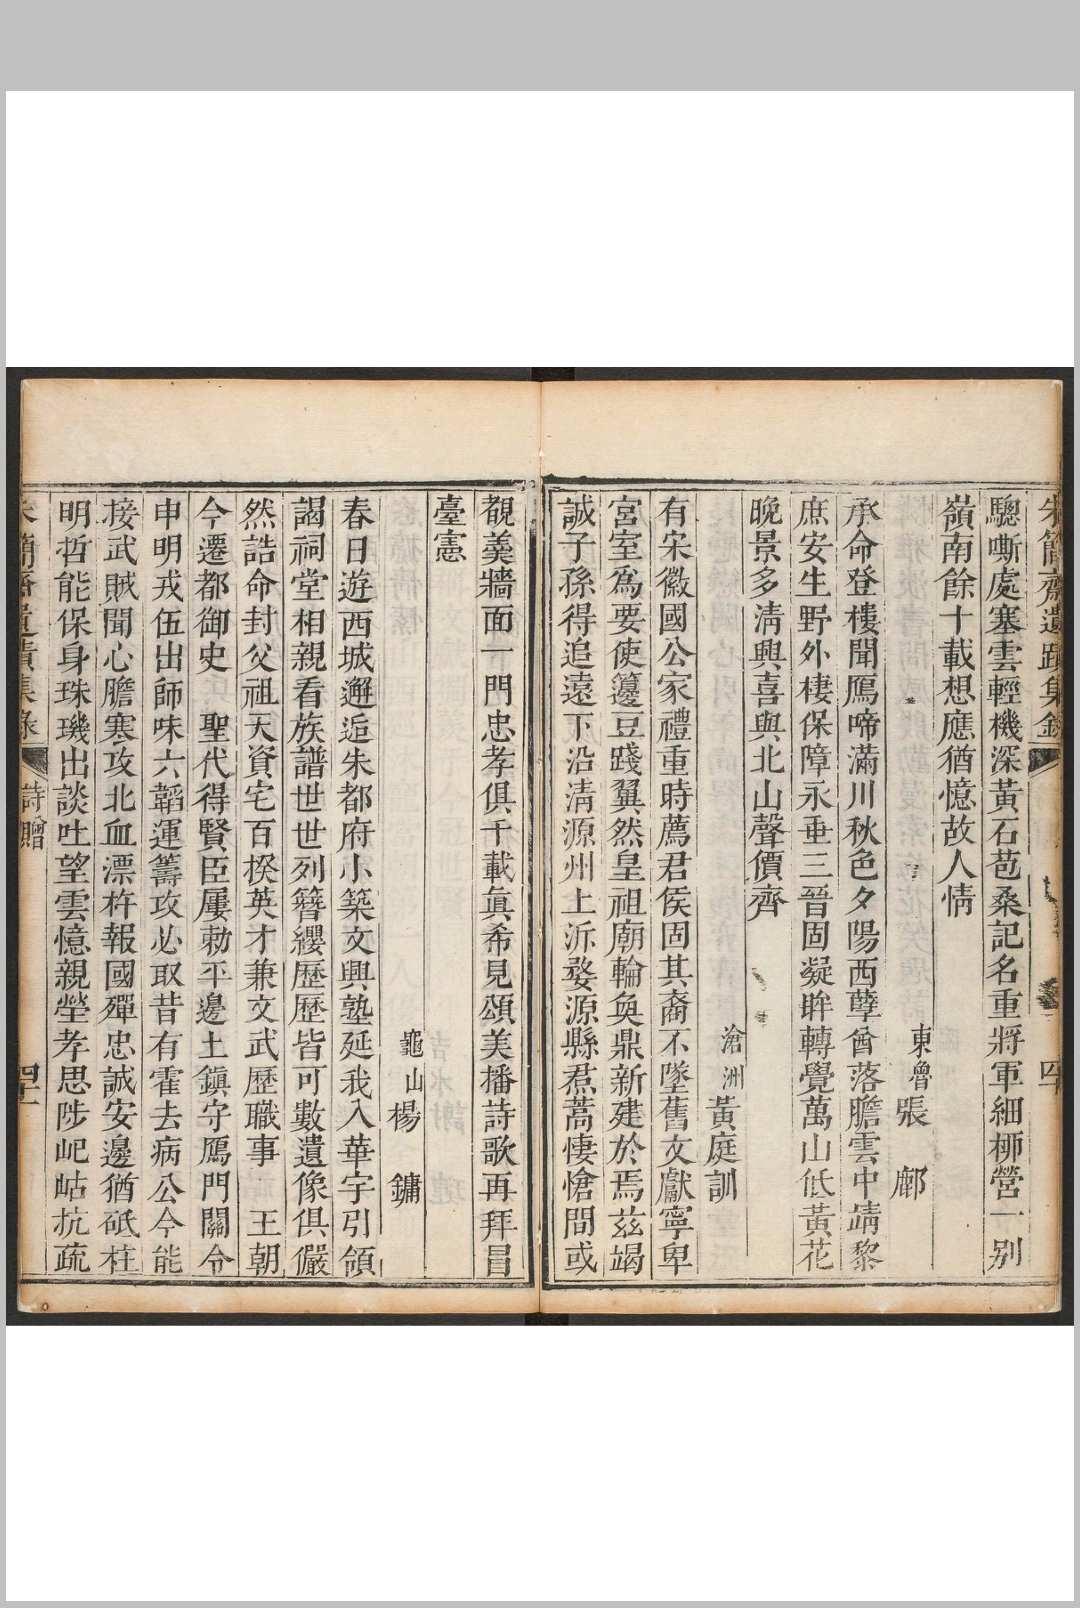 朱簡齋遺蹟集錄
四十
驄嘶處塞雲輕機深黃石苞桑記名重將軍細柳營一別
嶺南餘十載想應猶憶故人情
東魯張 鄜
承命登樓聞鴈啼滿川秋色夕陽西孽酋落膽雲中靖黎
庶安生野外棲保障永垂三晉固凝眸轉覺萬山低黃花
晚景多清興喜與北山聲價齊
滄洲黃庭訓
有宋徽國公家禮重時薦君侯固其裔不墜舊文獻寧卑
宮室爲要使籩豆踐翼然皇祖廟輪奐鼎新建於焉茲竭
誠子孫得追遠下沿清源州上泝婺源縣焄蒿悽愴間或
覩羹牆面一門忠孝俱千載眞希見頌美播詩歌再拜昌
臺憲
龜山楊 鏞
春日遊西城邂逅朱都府小築文興塾延我入華宇引領
謁祠堂相親看族譜世世列簪纓歷歷皆可數遺像俱儼
然誥命封父祖天資宅百揆英才兼文武歷職事 王朝
今遷都御史 聖代得賢臣屢勅平邊土鎮守鴈門關令
申明戎伍出師味六韜運籌攻必取昔有霍去病公今能
接武賊聞心膽寒攻北血漂杵報國殫忠誠安邊猶砥柱
明哲能保身珠璣出談吐望雲憶親塋孝思陟屺岵抗疏
朱簡齋遺蹟集錄
詩贈
四十一